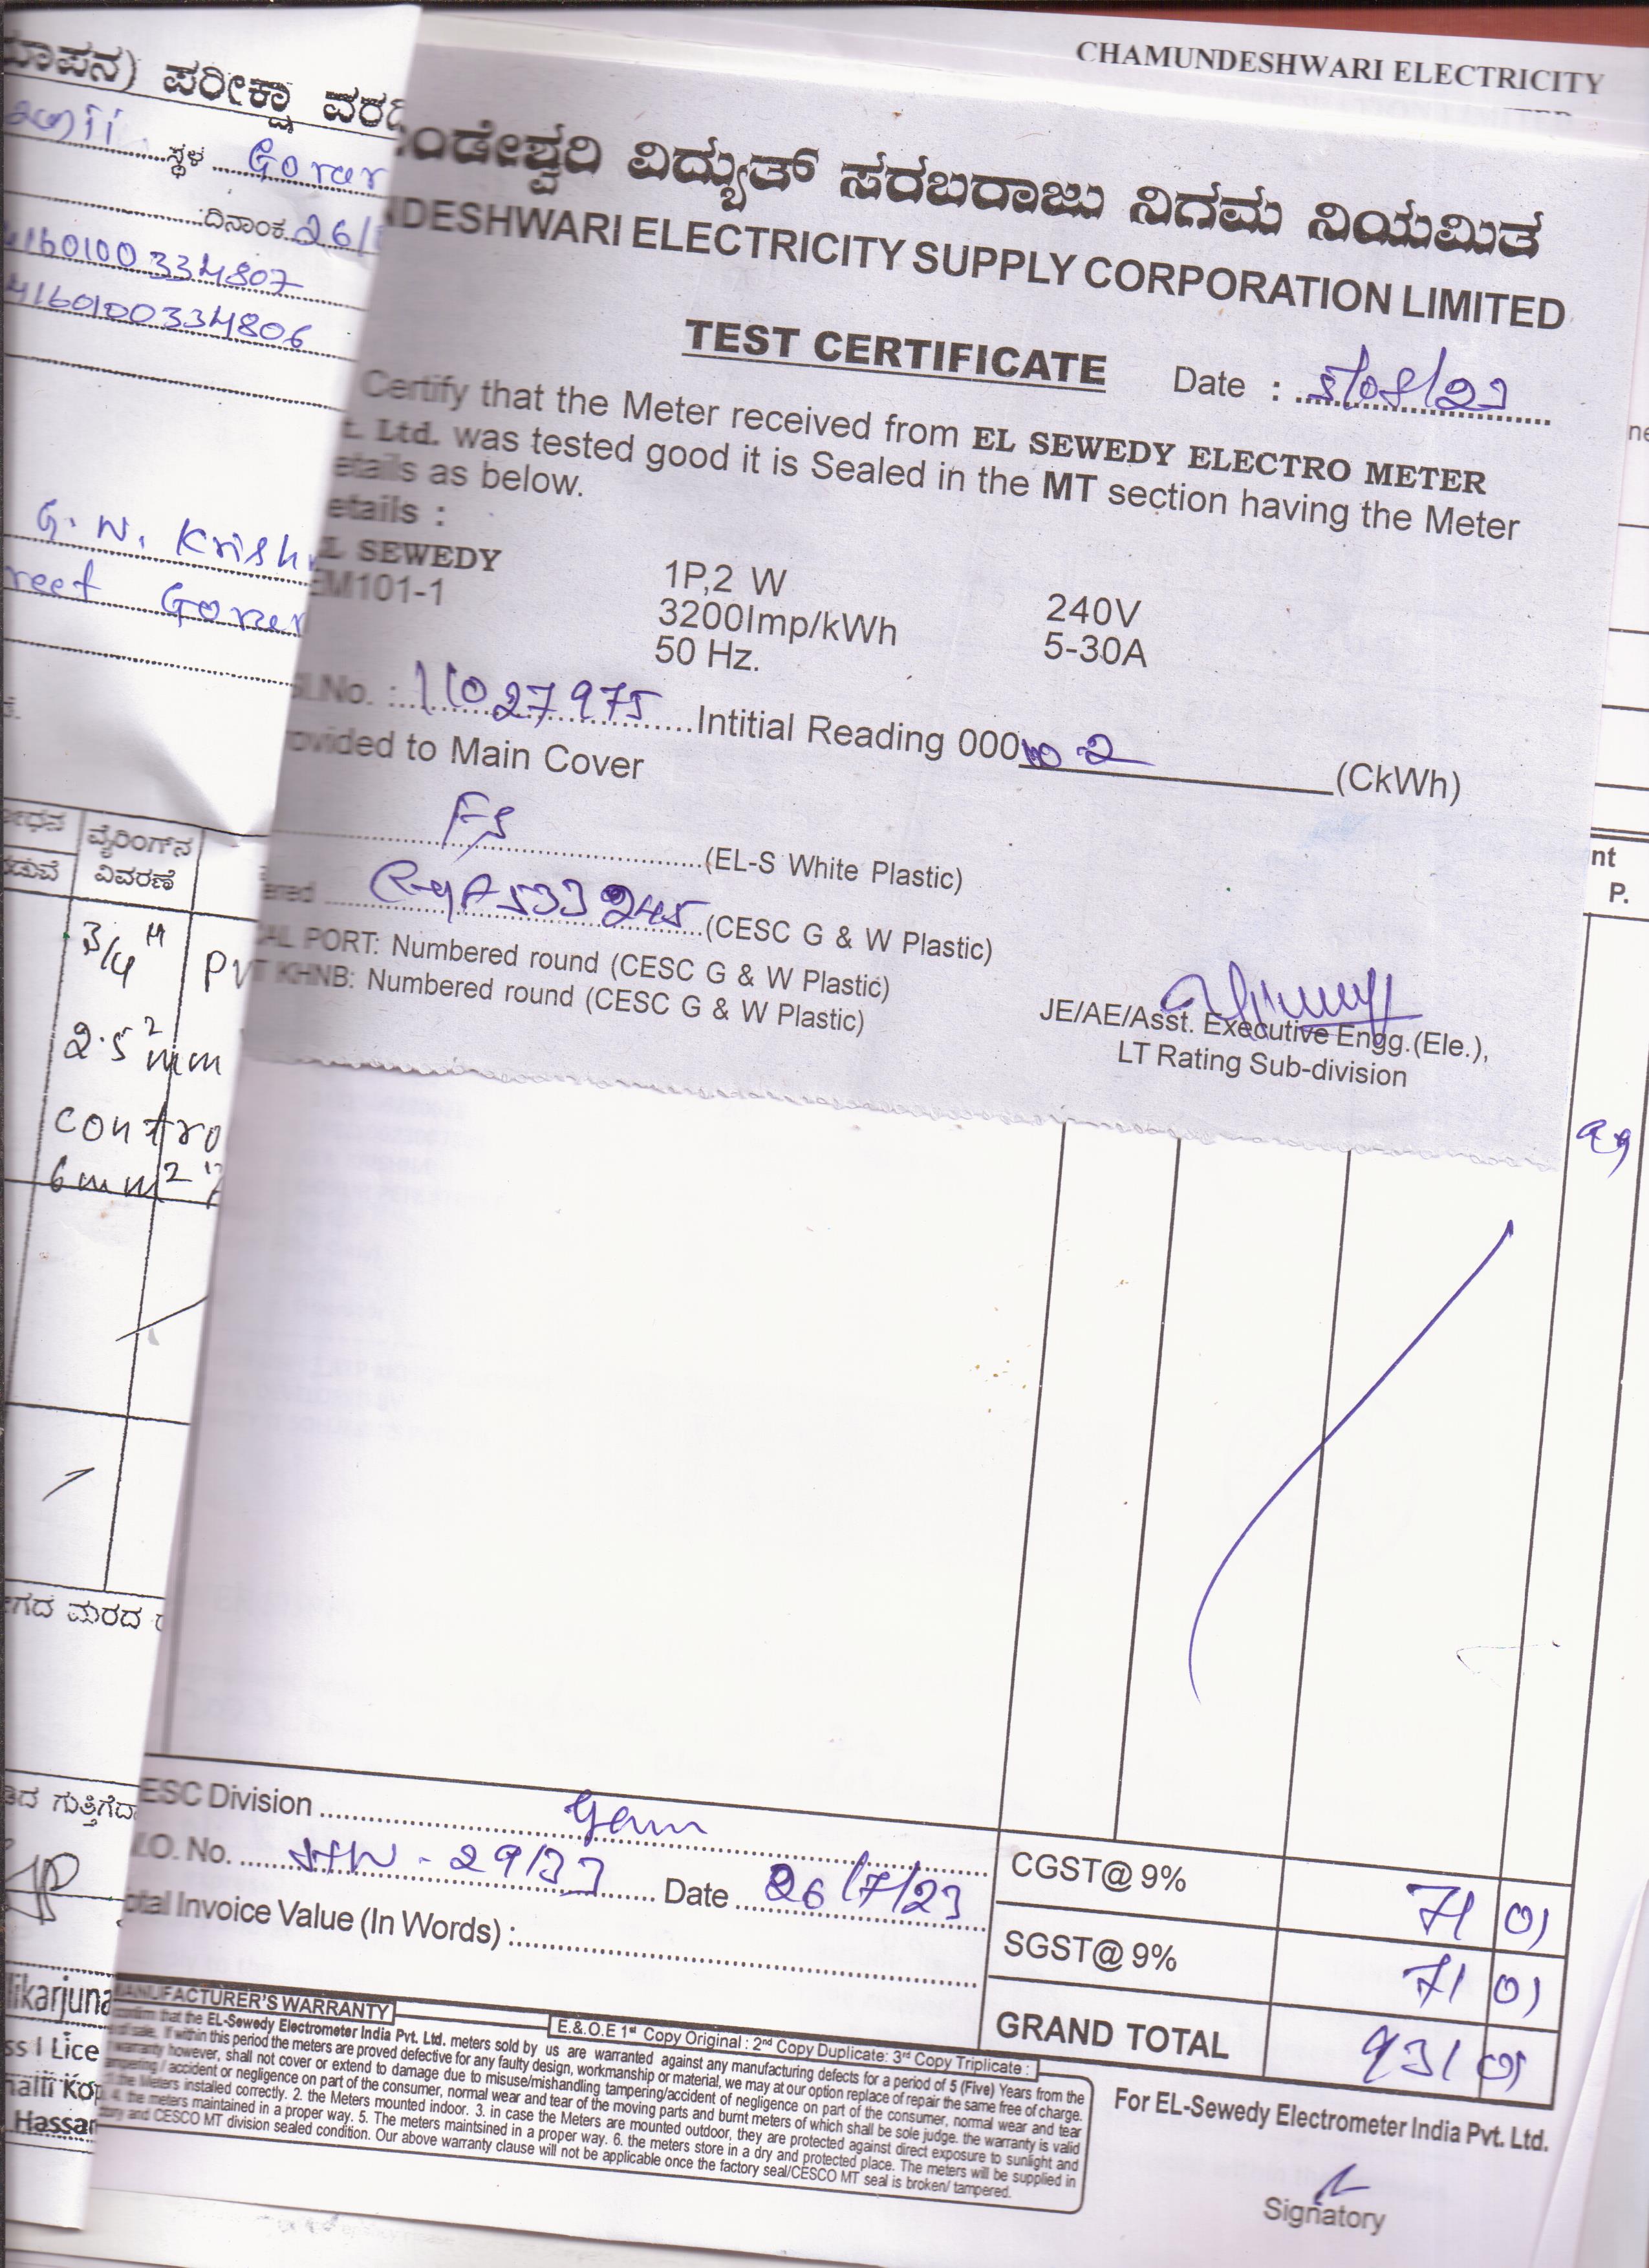 CHAMUNDESHWARI ELECTRICITY
ಪರೀಕ್ಷಾ
ಸ್ಥಳ
ದಿನಾಂಕ 26/
4160100334807
4160100334806
G. N. Krish
reet
ವೈರಿಂಗ್‌ನ
ವಿವರಣೆ
3/4"
2.5 mm²
contro
6mm²
ಮರದ
Hassan
ವಿದ್ಯುತ್ ಸರಬರಾಜು ನಿಗಮ ನಿಯಮಿತ
NDESHWARI ELECTRICITY SUPPLY CORPORATION LIMITED
TEST CERTIFICATE Date : 5/08/23
Certify that the Meter received from EL SEWEDY ELECTRO METER
t. Ltd. was tested good it is Sealed in the MT section having the Meter
etails as below.
etails :
L SEWEDY 1P,2 W 240V
EM101-1 3200Imp/kWh 5-30A
50 Hz.
Sl.No. : 11027975 Intitial Reading 000 (CkWh)
ovided to Main Cover
(EL-S White Plastic)
(CESC G & W Plastic)
PORT: Numbered round (CESC G & W Plastic)
KHNB: Numbered round (CESC G & W Plastic)
JE/AE/Asst. Executive Engg.(Ele.),
LT Rating Sub-division
nt
P.
ESC Division
.O. No. Date 26/7/23
otal Invoice Value (In Words) :
CGST@ 9% 71 01
SGST@ 9% 71 01
GRAND TOTAL 931 01
MANUFACTURER'S WARRANTY
E.&.O.E 1st Copy Original : 2nd Copy Duplicate: 3rd Copy Triplicate :
confirm that the EL-Sewedy Electrometer India Pvt. Ltd. meters sold by us are warranted against any manufacturing defects for a period of 5 (Five) Years from the
of sale. If within this period the meters are proved defective for any faulty design, workmanship or material, we may at our option replace of repair the same free of charge.
warranty however, shall not cover or extend to damage due to misuse/mishandling tampering/accident of negligence on part of the consumer, normal wear and tear
mpering / accident or negligence on part of the consumer, normal wear and tear of the moving parts and burnt meters of which shall be sole judge. the warranty is valid
the Meters installed correctly. 2. the Meters mounted indoor. 3. in case the Meters are mounted outdoor, they are protected against direct exposure to sunlight and
4. the meters maintained in a proper way. 5. The meters maintsined in a proper way. 6. the meters store in a dry and protected place. The meters will be supplied in
tory and CESCO MT division sealed condition. Our above warranty clause will not be applicable once the factory seal/CESCO MT seal is broken/ tampered.
For EL-Sewedy Electrometer India Pvt. Ltd.
Signatory